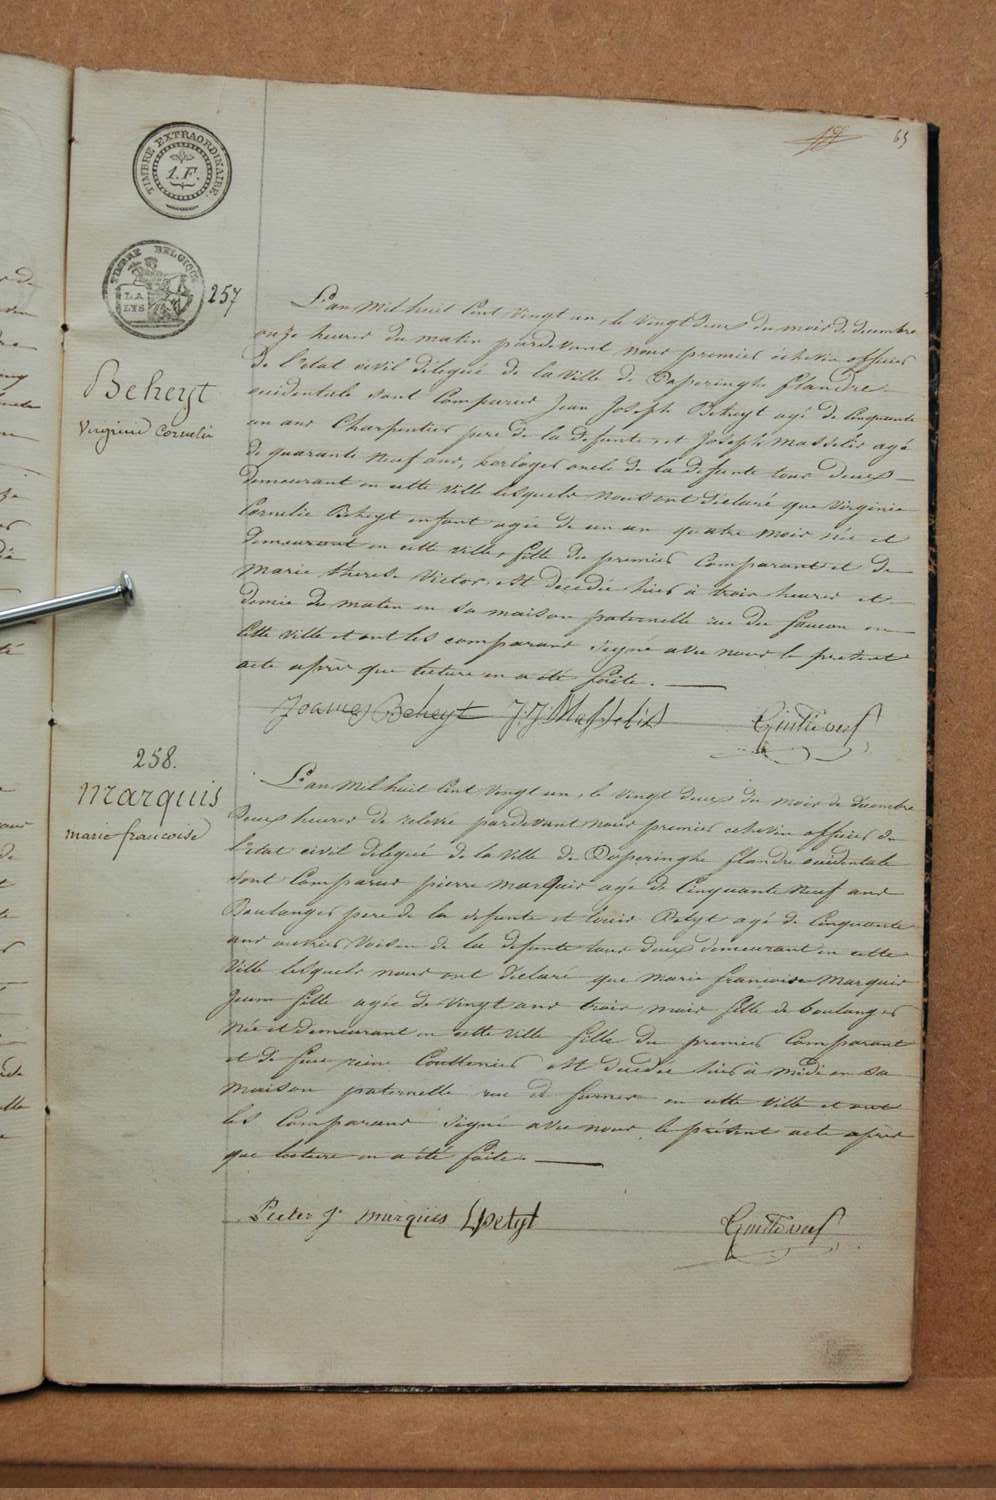 65
TIMBRE EXTRAORDINAIRE.
1.F.
TIMBRE BELGIQUE
LA
LYS
257
Beheyt
Virginie Cornelie
L'an mil huit Cent vingt un, le vingt deux du mois de décembre
onze heures du matin pardevant nous premier échevin officier
de l'état civil délégué de la ville de Poperinghe flandre
occidentale sont Comparus Jean Joseph Beheyt agé de Cinquante
un ans Charpentier pere de la defunte et Joseph Masselis agé
de quarante Neuf ans, horloger oncle de la defunte tous deux
demeurant en cette ville lesquels nous ont déclaré que Virginie
Cornelie Beheyt enfant agée de un an quatre mois née et
demeurant en cette ville, fille du premier Comparant et de
marie therese Victor, est decedée hier à trois heures et
demie du matin en sa maison paternelle rue du faucon en
Cette ville et ont les comparans signé avec nous le présent
acte après que lecture en a été faite.
Joannes Beheyt J:J: Masselis
258.
Marquis
marie francoise
L'an mil huit Cent vingt un, le vingt deux du mois de décembre
deux heures de relevé pardevant nous premier echevin officier de
l'état civil delegué de la ville de Poperinghe flandre occidentale
sont Comparus pierre marquis agé de Cinquante Neuf ans
Boulanger pere de la defunte et louis Petyt agé de Cinquante
ans ouvrier Voisin de la defunte tous deux demeurant en cette
Ville lesquels nous ont déclaré que marie francoise marquis
Jeune fille agée de Vingt ans trois mois fille de boulanger
Née et demeurant en cette ville fille du premier Comparant
et de feue reine Couttenier est decedée hier à midi en sa
maison paternelle rue de furnes en cette ville et ont
les Comparans signé avec nous le présent acte après
que lecture en a été faite.
Pieter J. marquis L petyt